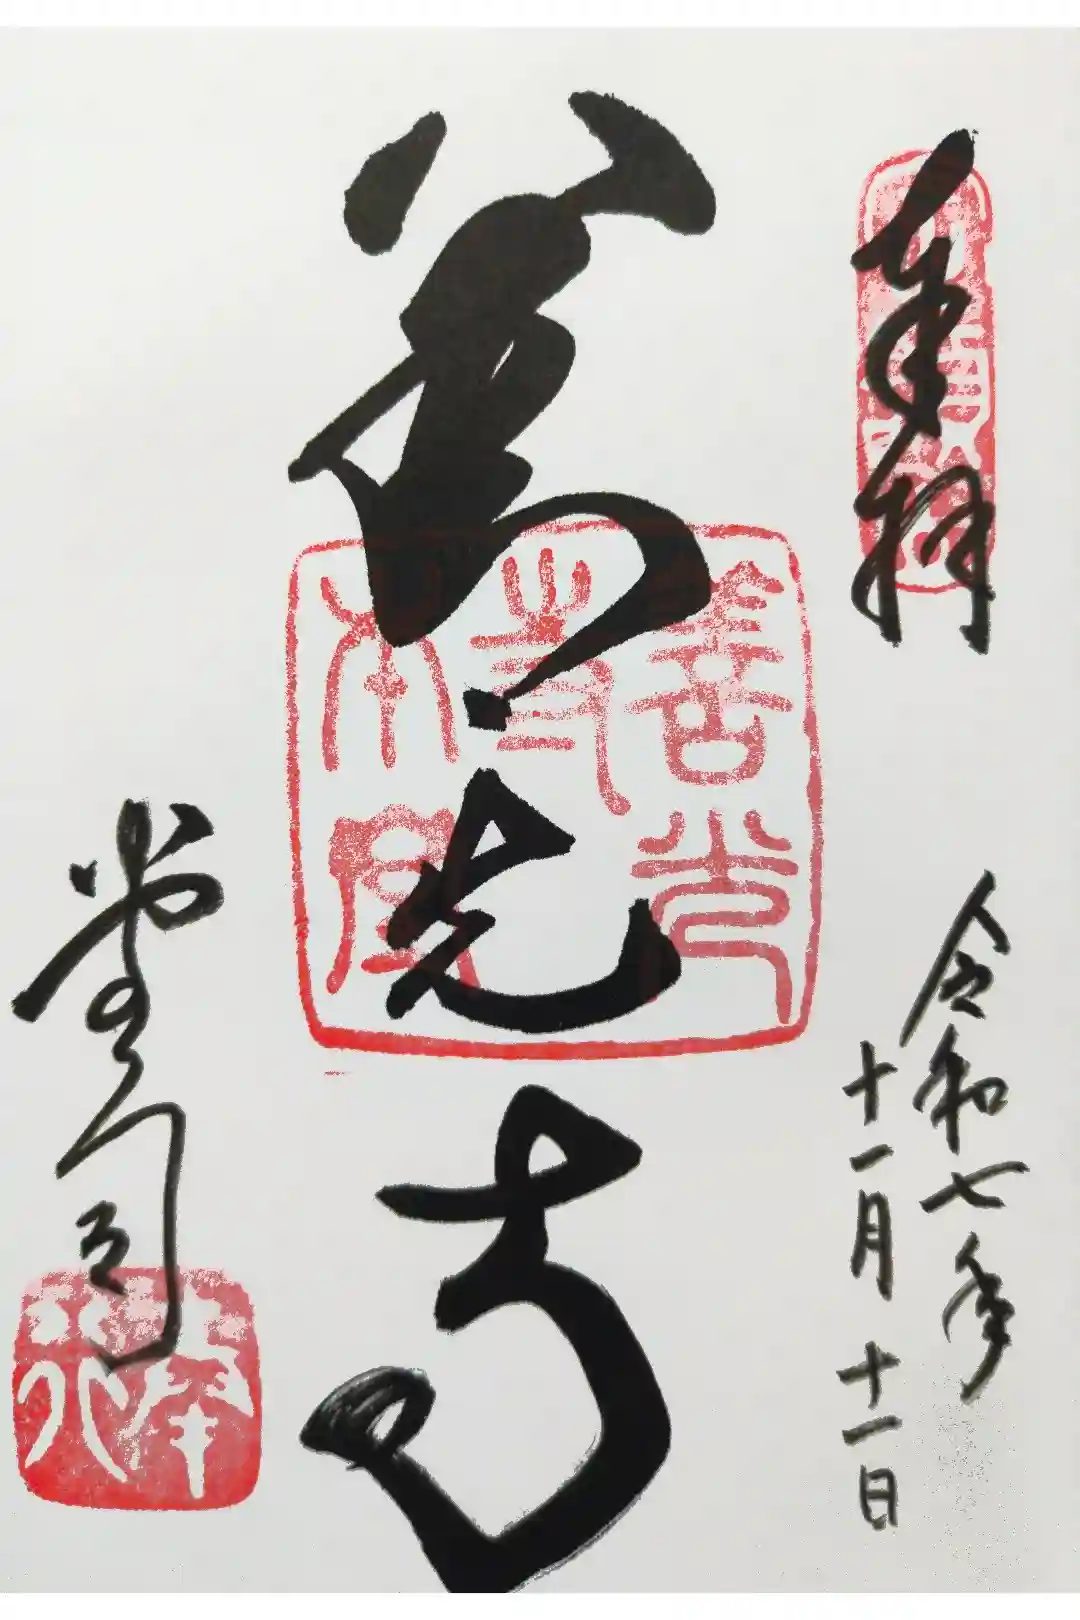 奉拝
令和七年
十一月十一日
善光寺
善光寺
堂司